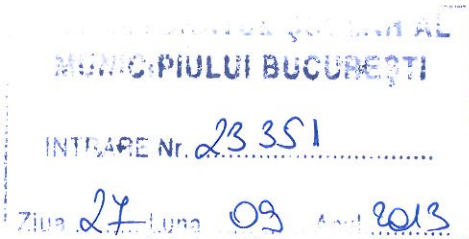 ȘCOLAR AL
MUNICIPIULUI BUCUREȘTI
INTRARE Nr. 23351
Ziua 27 Luna 09 Anul 2013